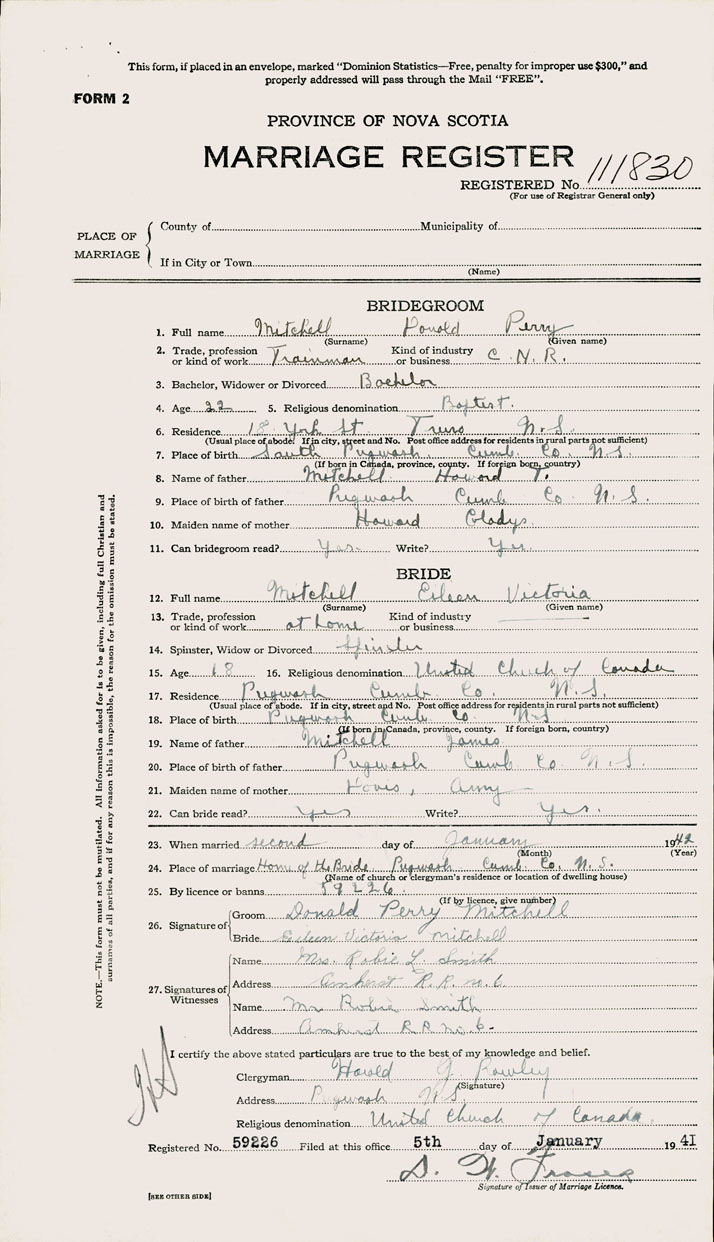 This form, if placed in an envelope, marked "Dominion Statistics—Free, penalty for improper use $300," and
properly addressed will pass through the Mail "FREE".
FORM 2
PROVINCE OF NOVA SCOTIA
MARRIAGE REGISTER
REGISTERED No. 111830
(For use of Registrar General only)
PLACE OF MARRIAGE
County of Municipality of
If in City or Town
(Name)
BRIDEGROOM
1. Full name Mitchell Donald Perry
(Surname) (Given name)
2. Trade, profession or kind of work Trainman Kind of industry or business C.N.R.
3. Bachelor, Widower or Divorced Bachelor
4. Age 22 5. Religious denomination Baptist.
6. Residence York St Truro N.S.
(Usual place of abode. If in city, street and No. Post office address for residents in rural parts not sufficient)
7. Place of birth South Pugwash Cumb. Co. N.S.
(If born in Canada, province, county. If foreign born, country)
8. Name of father Mitchell Howard T.
9. Place of birth of father Pugwash Cumb Co N.S.
10. Maiden name of mother Howard Gladys
11. Can bridegroom read? Yes. Write? Yes.
BRIDE
12. Full name Mitchell Eileen Victoria
(Surname) (Given name)
13. Trade, profession or kind of work at home Kind of industry or business
14. Spinster, Widow or Divorced Spinster
15. Age 18 16. Religious denomination United Church of Canada
17. Residence Pugwash Cumb. Co. N.S.
(Usual place of abode. If in city, street and No. Post office address for residents in rural parts not sufficient)
18. Place of birth Pugwash Cumb Co N.S
(If born in Canada, province, county. If foreign born, country)
19. Name of father Mitchell James
20. Place of birth of father Pugwash Cumb Co. N.S.
21. Maiden name of mother Amy
22. Can bride read? Yes Write? Yes.
23. When married second day of January 1942
(Month) (Year)
24. Place of marriage Home of the Bride Pugwash Cumb. Co. N.S.
(Name of church or clergyman's residence or location of dwelling house)
25. By licence or banns 59226
(If by licence, give number)
26. Signature of
Groom Donald Perry Mitchell
Bride Eileen Victoria Mitchell
27. Signatures of Witnesses
Name Mrs. Robie L. Smith
Address Amherst R.R. no. 6.
Name Mr Robie Smith
Address Amherst R.R no. 6.
I certify the above stated particulars are true to the best of my knowledge and belief.
Clergyman Harold G Rowley
(Signature)
Address Pugwash N.S.
Religious denomination United Church of Canada.
Registered No. 59226 Filed at this office 5th day of January 1941
Signature of Issuer of Marriage Licence.
[SEE OTHER SIDE]
NOTE.—This form must not be mutilated. All information asked for is to be given, including full Christian and
surnames of all parties, and if for any reason this is impossible, the reason for the omission must be stated.